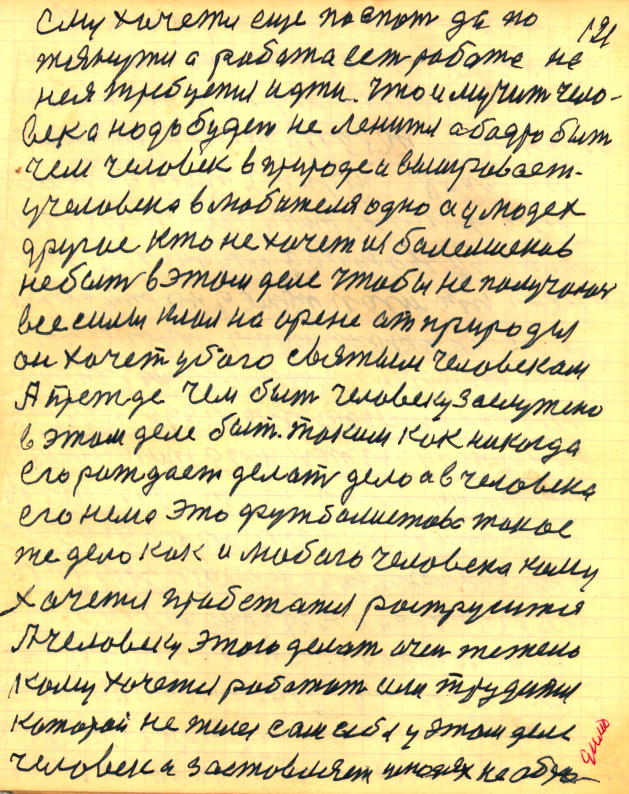 121
ему хочется еще поспат да по
тянутися а работа ест робота на
нея требуется идти. Что и мучит чело-
века надо будет не ленится а бадро быт
чем человек в природе и выигровает-
у человека в любителя одно а у людех
другое Кто не хочет из балельшиков
небыт в этом деле чтобы не получалас
все силы клал на орене ат природы
он хочет у бога святым человекам
А прежде чем быт человеку заслужено
в этом деле быт. таким как никогда
его рождает делат дело а в человека
его нема Это футбалистова такое
же дело как и любого человека кому
хочется прабежатся раструсится
А человеку этого делат очен тежело
кому хочется работат или трудится
которой не жилел сам себя у этом деле
человека заставляет людях на обще